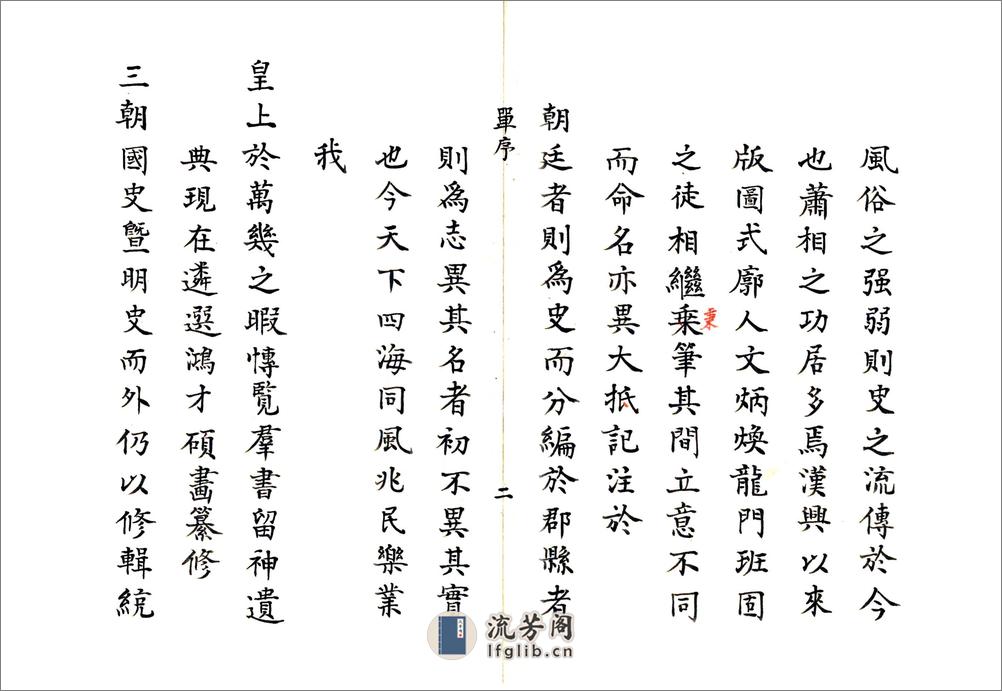 風俗之强弱則史之流傳於今
也蕭相之功居多焉漢興以來
版圖式廓人文炳煥龍門班固
之徒相繼乗筆其間立意不同
秉
而命名亦異大抵記注於
朝廷者則爲史而分編於郡縣者
單序
二
則爲志異其名者初不異其實
也今天下四海同風兆民樂業
我
皇上於萬幾之暇愽覧羣書留神遺
典現在遴選鴻才碩畵纂修
三朝國史曁明史而外仍以修輯統
流芳阁
lfglib.cn